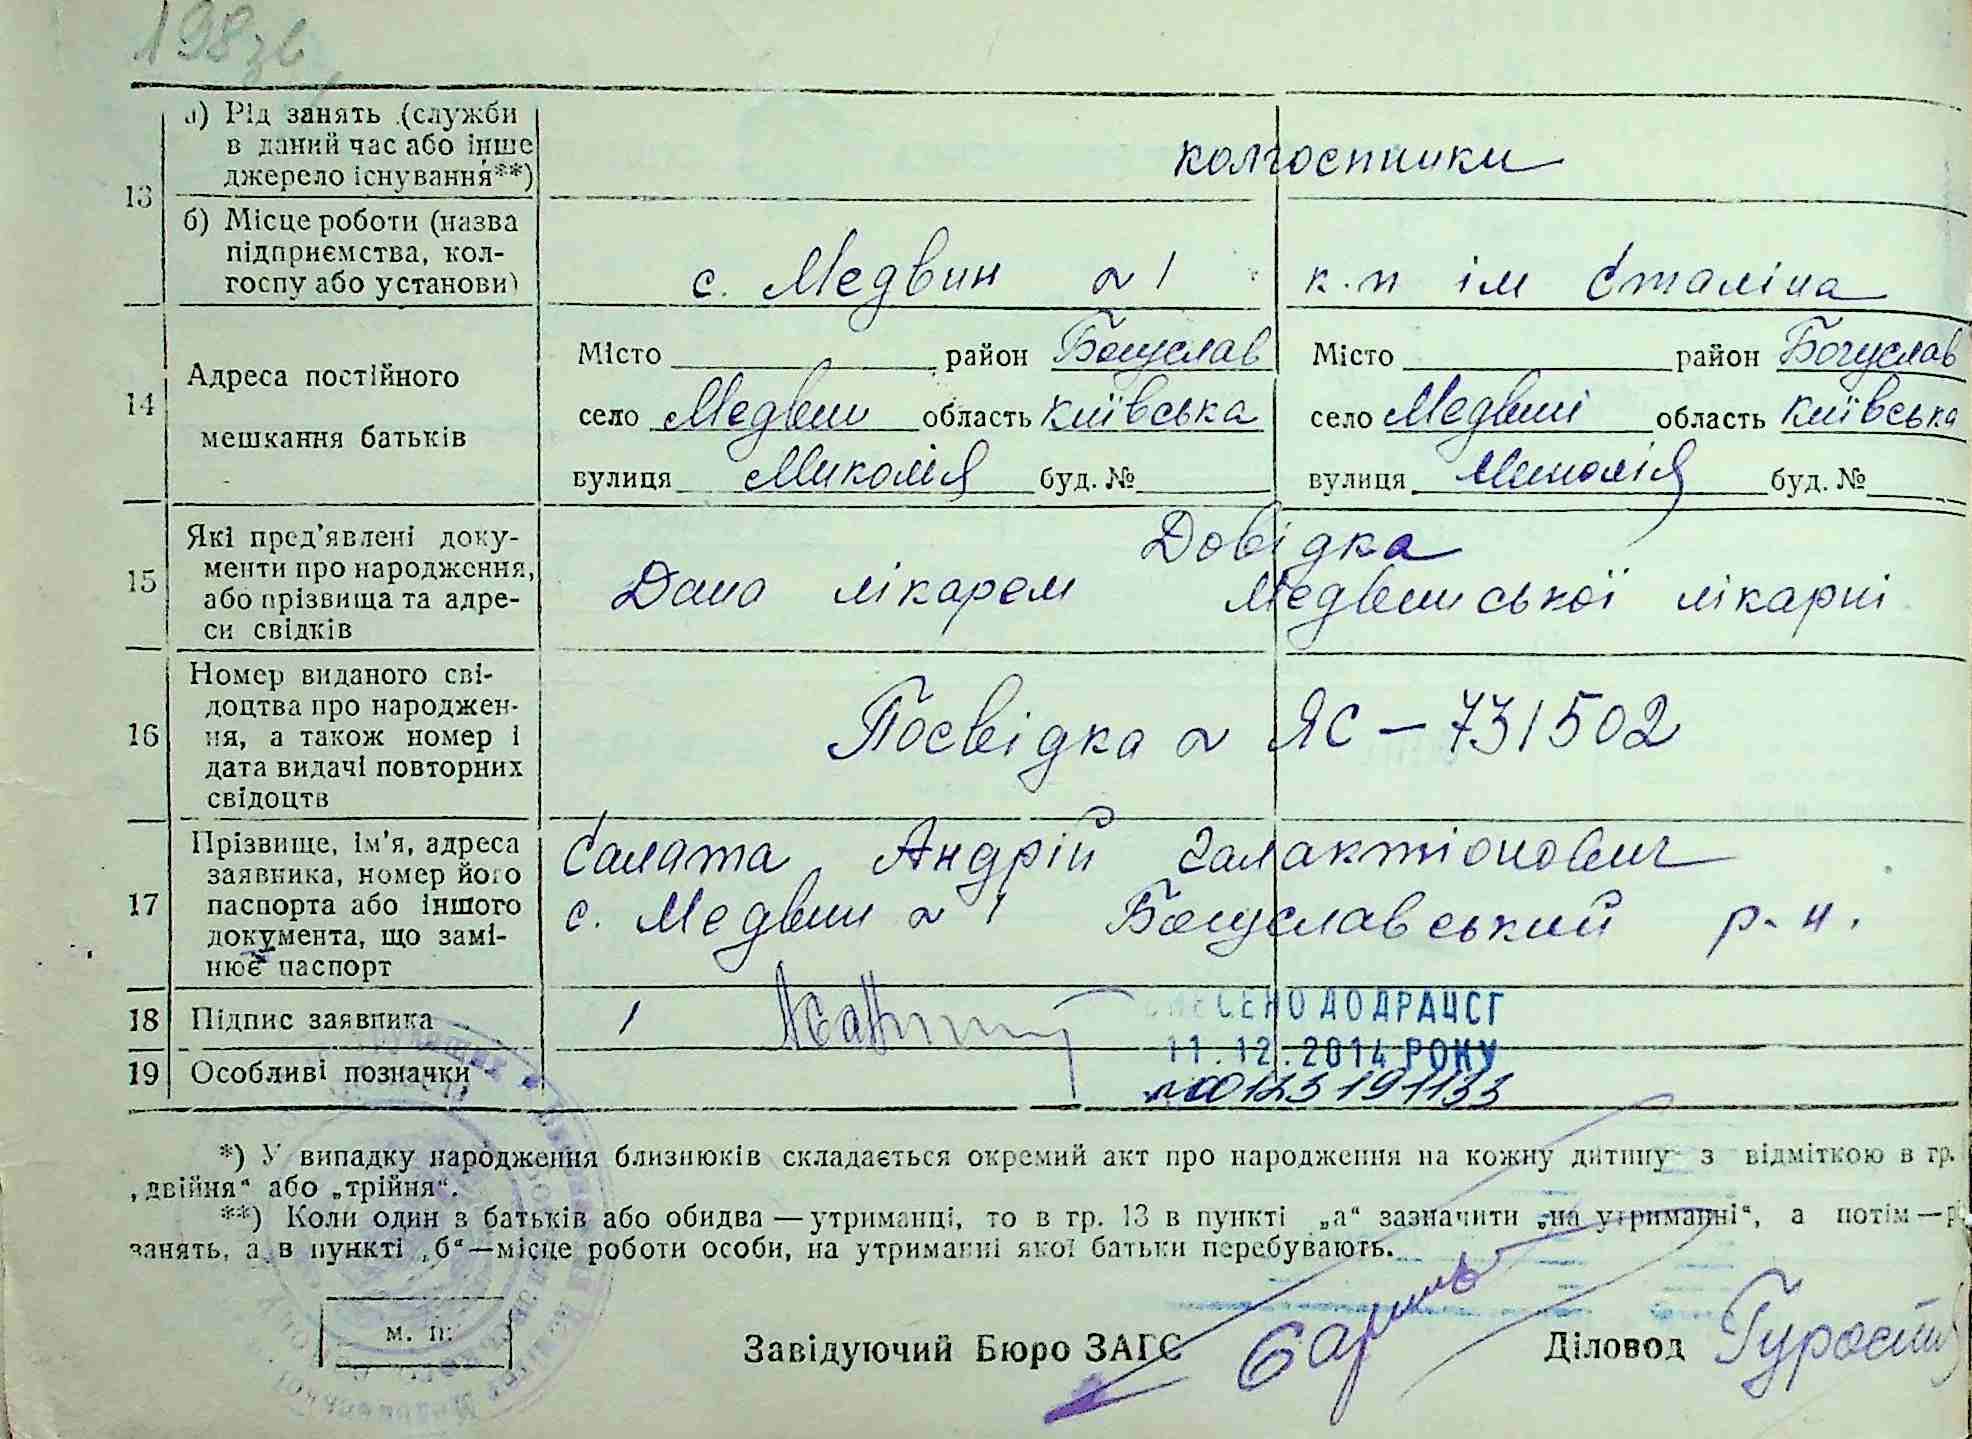 198зв
а) Рід занять (служби
в даний час або інше
джерело існування**)
колгоспники
13
б) Місце роботи (назва
підприємства, кол-
госпу або установи)
с. Медвин ~ 1 к.п ім Сталіна
14
Адреса постійного
мешкання батьків
Місто район Богуслав Місто район Богуслав
село Медвин область Київська село Медвині область Київська
вулиця Миколія буд. № вулиця буд. №
15
Які пред'явлені доку-
менти про народження,
або прізвища та адре-
си свідків
Довідка
Дана лікарем Медвинської лікарні
16
Номер виданого сві-
доцтва про народжен-
ня, а також номер і
дата видачі повторних
свідоцтв
Посвідка ~ ЯС – 731502
17
Прізвище, ім'я, адреса
заявника, номер його
паспорта або іншого
документа, що замі-
нює паспорт
Салата Андрій Галактіонович
с. Медвин ~ 1 Богуславський р-н.
18 Підпис заявника 1
ВНЕСЕНО ДО ДРАЦСГ
19 Особливі позначки
11.12.2014 РОКУ
№00123191133
*) У випадку народження близнюків складається окремий акт про народження на кожну дитину з відміткою в гр.
„двійня" або „трійня".
**) Коли один з батьків або обидва — утриманці, то в гр. 13 в пункті „а" зазначити „на утриманні", а потім — рід
занять, а в пункті „б"—місце роботи особи, на утриманні якої батьки перебувають.
м. п.
Завідуючий Бюро ЗАГС Діловод